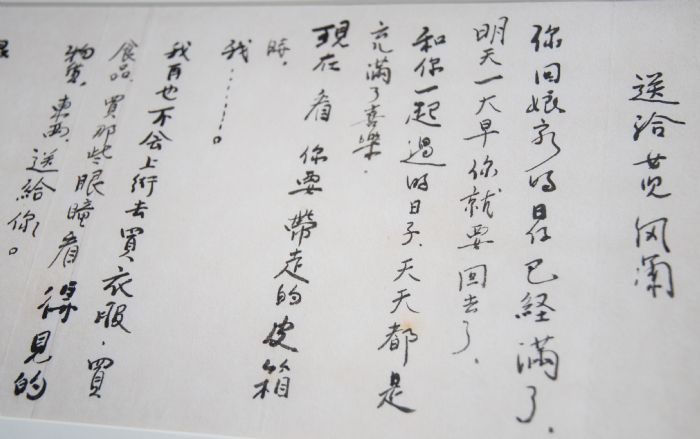 送給
你回娘家的日子已経滿了.
明天一大早你就要回去了.
和你一起過的日子.天天都是
充滿了喜樂.
現在看你要帶走的皮箱
時,
我……。
我再也不会上街去買衣服.買
食品.買那些眼瞳看得見的
物質.東西.送給你。